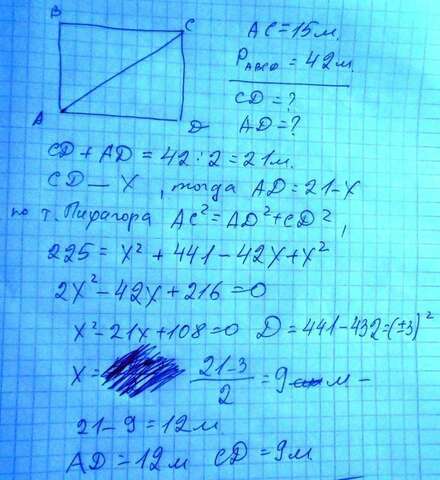 B
C
A
D
AC = 15м.
P_ABCD = 42м.
CD = ?
AD = ?
CD + AD = 42 : 2 = 21м.
CD — x, тогда AD = 21 - x
по т. Пифагора AC² = AD² + CD²,
225 = x² + 441 - 42x + x²
2x² - 42x + 216 = 0
x² - 21x + 108 = 0 D = 441 - 432 = (±3)²
x = (21 - 3)/2 = 9 м -
21 - 9 = 12м
AD = 12м CD = 9м